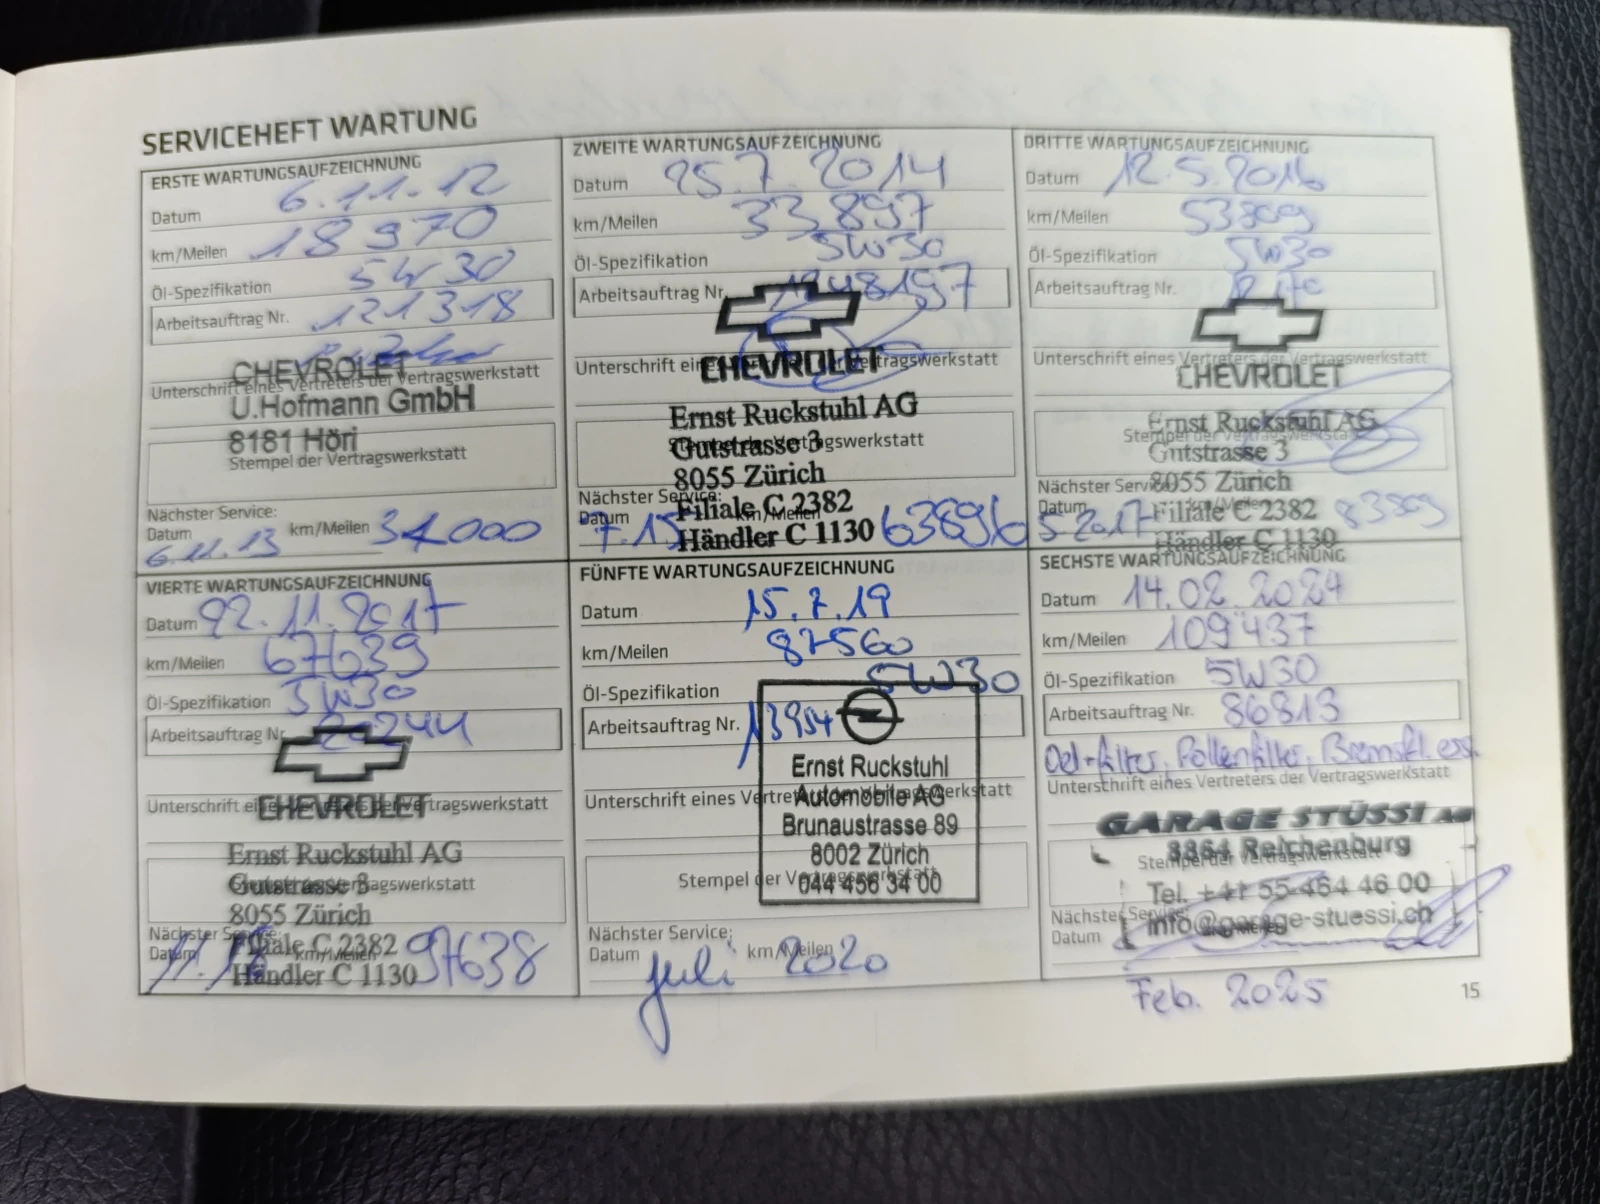 SERVICEHEFT WARTUNG
ERSTE WARTUNGSAUFZEICHNUNG
Datum 6.11.12
km/Meilen 18970
Öl-Spezifikation 5W30
Arbeitsauftrag Nr. 121318
Unterschrift eines Vertreters der Vertragswerkstatt
CHEVROLET
U.Hofmann GmbH
8181 Höri
Stempel der Vertragswerkstatt
Nächster Service:
Datum 6.11.13 km/Meilen 34000
ZWEITE WARTUNGSAUFZEICHNUNG
Datum 25.7.2014
km/Meilen 33897
Öl-Spezifikation 5W30
Arbeitsauftrag Nr.
Unterschrift eines Vertreters der Vertragswerkstatt
CHEVROLET
Ernst Ruckstuhl AG
Stempel der Vertragswerkstatt
Gutstrasse 3
8055 Zürich
Nächster Service:
Filiale C 2382
Datum 7.15 km/Meilen 63896
Händler C 1130
DRITTE WARTUNGSAUFZEICHNUNG
Datum 12.5.2016
km/Meilen 53809
Öl-Spezifikation 5W30
Arbeitsauftrag Nr.
Unterschrift eines Vertreters der Vertragswerkstatt
CHEVROLET
Ernst Ruckstuhl AG
Stempel der Vertragswerkstatt
Gutstrasse 3
8055 Zürich
Nächster Service:
Datum 5 2017 km/Meilen 83809
Filiale C 2382
Händler C 1130
VIERTE WARTUNGSAUFZEICHNUNG
Datum 22.11.2017
km/Meilen 67639
Öl-Spezifikation 5W30
Arbeitsauftrag Nr.
CHEVROLET
Unterschrift eines Vertreters der Vertragswerkstatt
Ernst Ruckstuhl AG
Gutstrasse 3
Stempel der Vertragswerkstatt
8055 Zürich
Nächster Service:
Filiale C 2382
Datum km/Meilen 97638
Händler C 1130
FÜNFTE WARTUNGSAUFZEICHNUNG
Datum 15.7.19
km/Meilen 87560
Öl-Spezifikation 5W30
Arbeitsauftrag Nr. 13954
Ernst Ruckstuhl
Unterschrift eines Vertreters der Vertragswerkstatt
Automobile AG
Brunaustrasse 89
8002 Zürich
Stempel der Vertragswerkstatt
044 456 34 00
Nächster Service:
Datum Juli km/Meilen 2020
SECHSTE WARTUNGSAUFZEICHNUNG
Datum 14.02.2024
km/Meilen 109'437
Öl-Spezifikation 5W30
Arbeitsauftrag Nr. 86813
Oel+filter, Pollenfilter, Bremsfl. ers.
Unterschrift eines Vertreters der Vertragswerkstatt
GARAGE STÜSSI AG
8864 Reichenburg
Stempel der Vertragswerkstatt
Tel. +41 55 464 46 00
Nächster Service:
info@garage-stuessi.ch
Datum
Feb. 2025
15